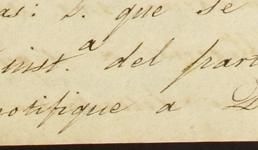 as: S. que se
inist.a del part
notifique a D